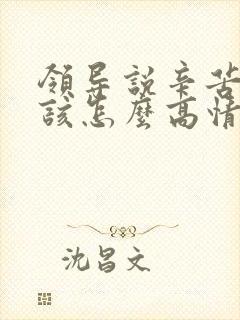 領导説辛苦
該怎麽高情
沈昌文